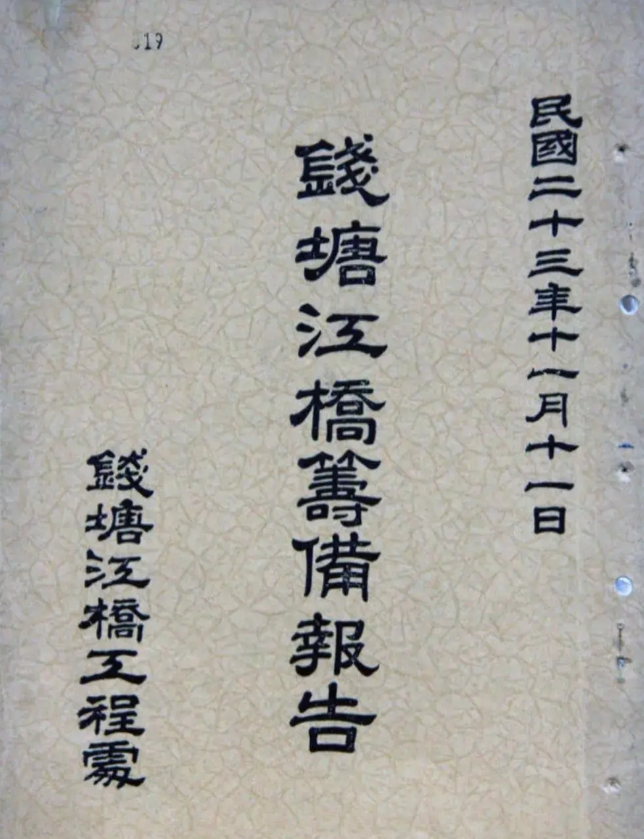 民國二十三年十一月十一日
錢塘江橋籌備報告
錢塘江橋工程處
19